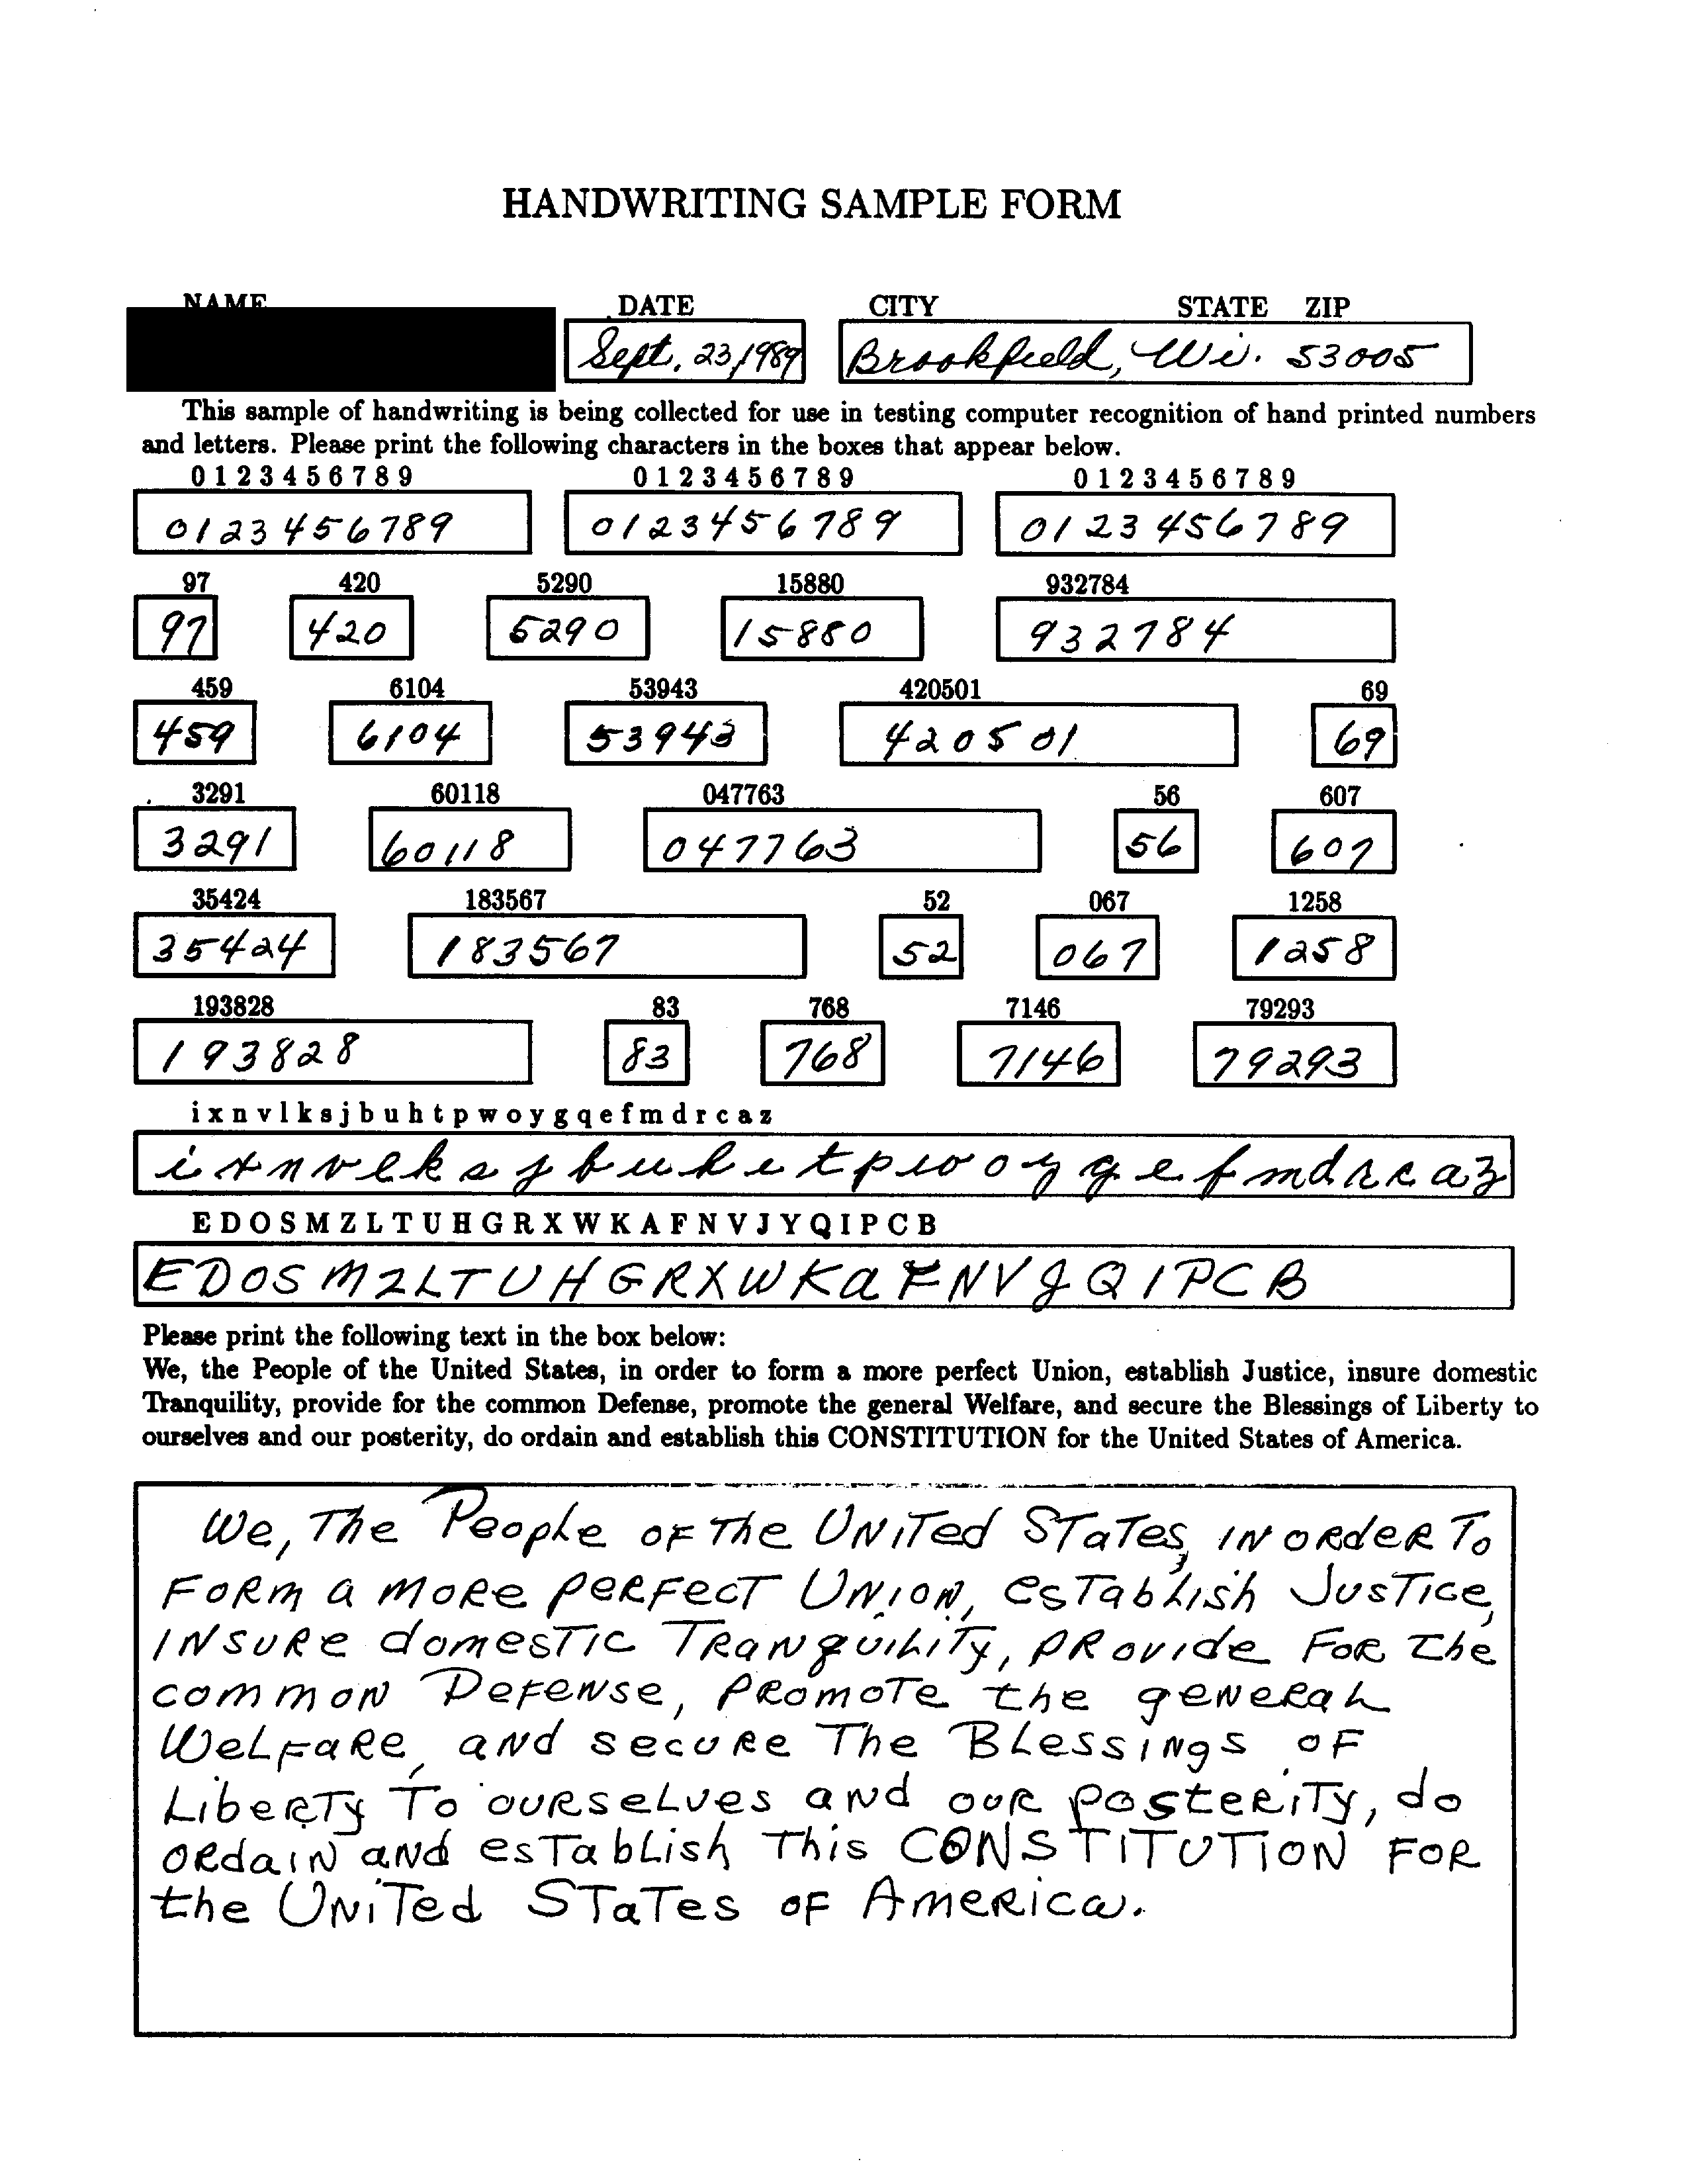 HANDWRITING SAMPLE FORM
NAME DATE CITY STATE ZIP
Sept. 23, 1989 Brookfield, Wi. 53005
This sample of handwriting is being collected for use in testing computer recognition of hand printed numbers
and letters. Please print the following characters in the boxes that appear below.
0 1 2 3 4 5 6 7 8 9 0 1 2 3 4 5 6 7 8 9 0 1 2 3 4 5 6 7 8 9
0123456789 0123456789 0123456789
97 420 5290 15880 932784
97 420 5290 15880 932784
459 6104 53943 420501 69
459 6104 53943 420501 69
3291 60118 047763 56 607
3291 60118 047763 56 607
35424 183567 52 067 1258
35424 183567 52 067 1258
193828 83 768 7146 79293
193828 83 768 7146 79293
i x n v l k s j b u h t p w o y g q e f m d r c a z
i x n v l k s j b u h t p w o y g q e f m d r c a z
E D O S M Z L T U H G R X W K A F N V J Y Q I P C B
E D O S M Z L T U H G R X W K a F N V J Q I P C B
Please print the following text in the box below:
We, the People of the United States, in order to form a more perfect Union, establish Justice, insure domestic
Tranquility, provide for the common Defense, promote the general Welfare, and secure the Blessings of Liberty to
ourselves and our posterity, do ordain and establish this CONSTITUTION for the United States of America.
We, The People of The United States, in order To
Form a more perfect Union, establish Justice,
insure domestic Tranquility, provide For the
common Defense, Promote the general
Welfare, and secure The Blessings of
Liberty To ourselves and our posterity, do
ordain and establish This CONSTITUTION FOR
the United States of America.